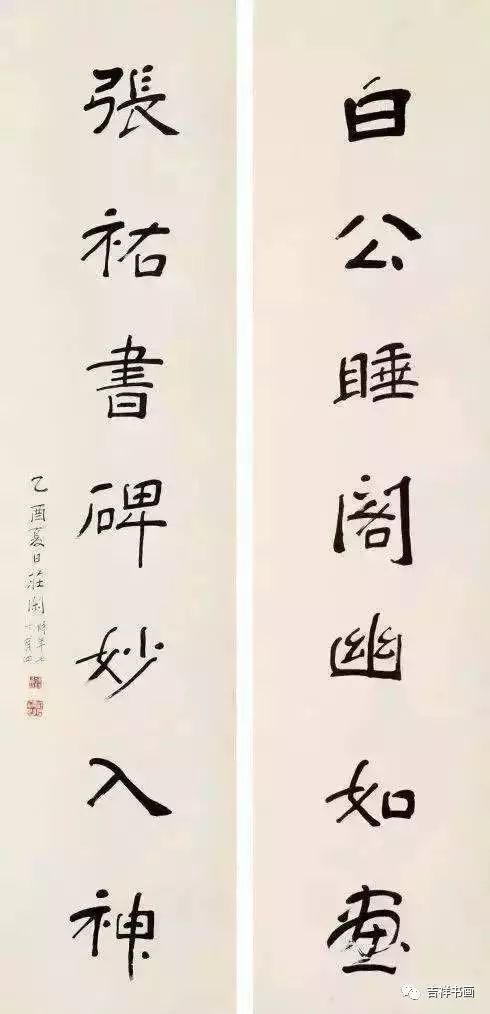 白公睡閣幽如畫
張祐書碑妙入神
乙酉夏日莊
時年
十有四
吉祥书画